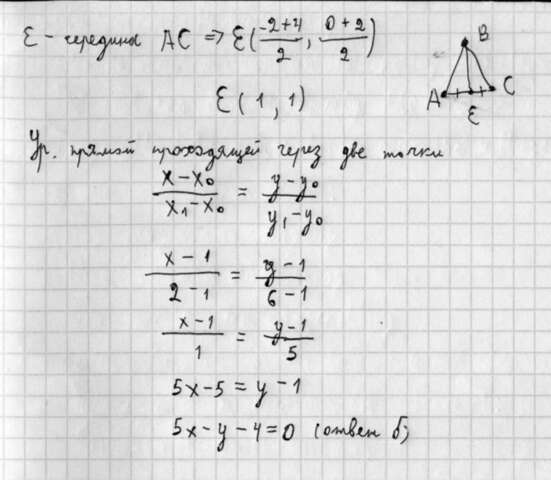 E - середина AC => E(-2+4/2, 0+2/2)
B
A
C
E
E(1, 1)
Ур. прямой проходящей через две точки
x-x₀/x₁-x₀ = y-y₀/y₁-y₀
x-1/2-1 = y-1/6-1
x-1/1 = y-1/5
5x-5=y-1
5x-y-4=0 (ответ б)